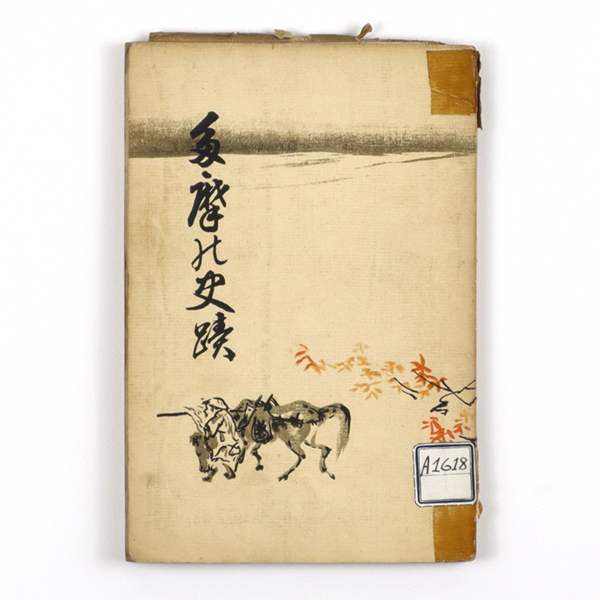 多摩の史蹟
A1618